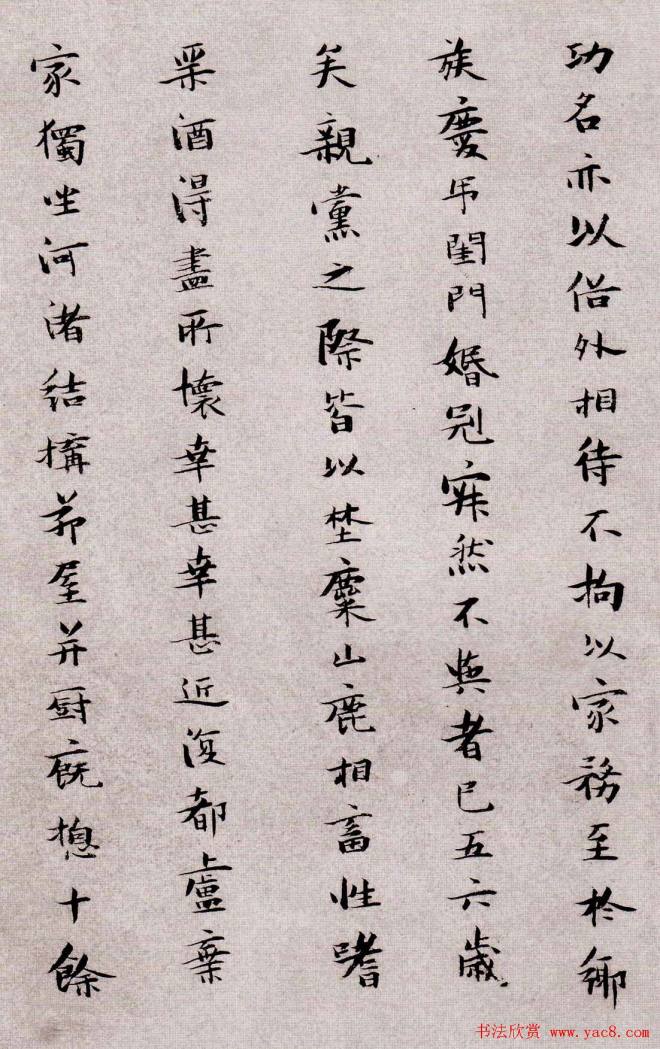 功名亦以俗外相待不拘以家務至於鄉
族慶吊閨門婚冠寂然不與者已五六歲
矣親黨之際皆以埜麋山鹿相畜性嗜
琹酒得盡所懷幸甚幸甚近復都盧棄
家獨坐河渚結搆茆屋并厨廐揔十餘
书法欣赏 www.yac8.com